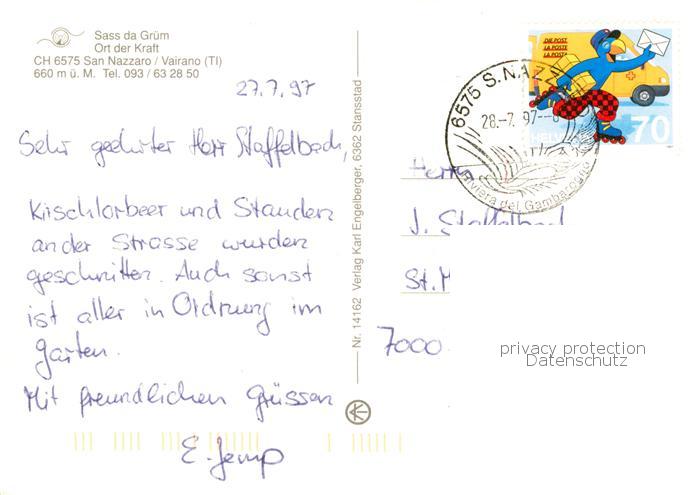 Sass da Grüm
Ort der Kraft
CH 6575 San Nazzaro / Vairano (TI)
660 m ü. M. Tel. 093 / 63 28 50
27.7.97
Sehr geehrter Herr Staffelbach,
Kirschlorbeer und Stauden
an der Strasse wurden
geschnitten. Auch sonst
ist alles in Ordnung im
Garten.
Mit freundlichen Grüssen
E. Jemp
Nr. 14162 Verlag Karl Engelberger, 6362 Stansstad
DIE POST
LA POSTE
LA POSTA
HELV
70
6575 S. NAZZ
28.-7. 97--8
Riviera del Gambarogno
Herrn
J. Staffelbach
St. M
7000
privacy protection
Datenschutz